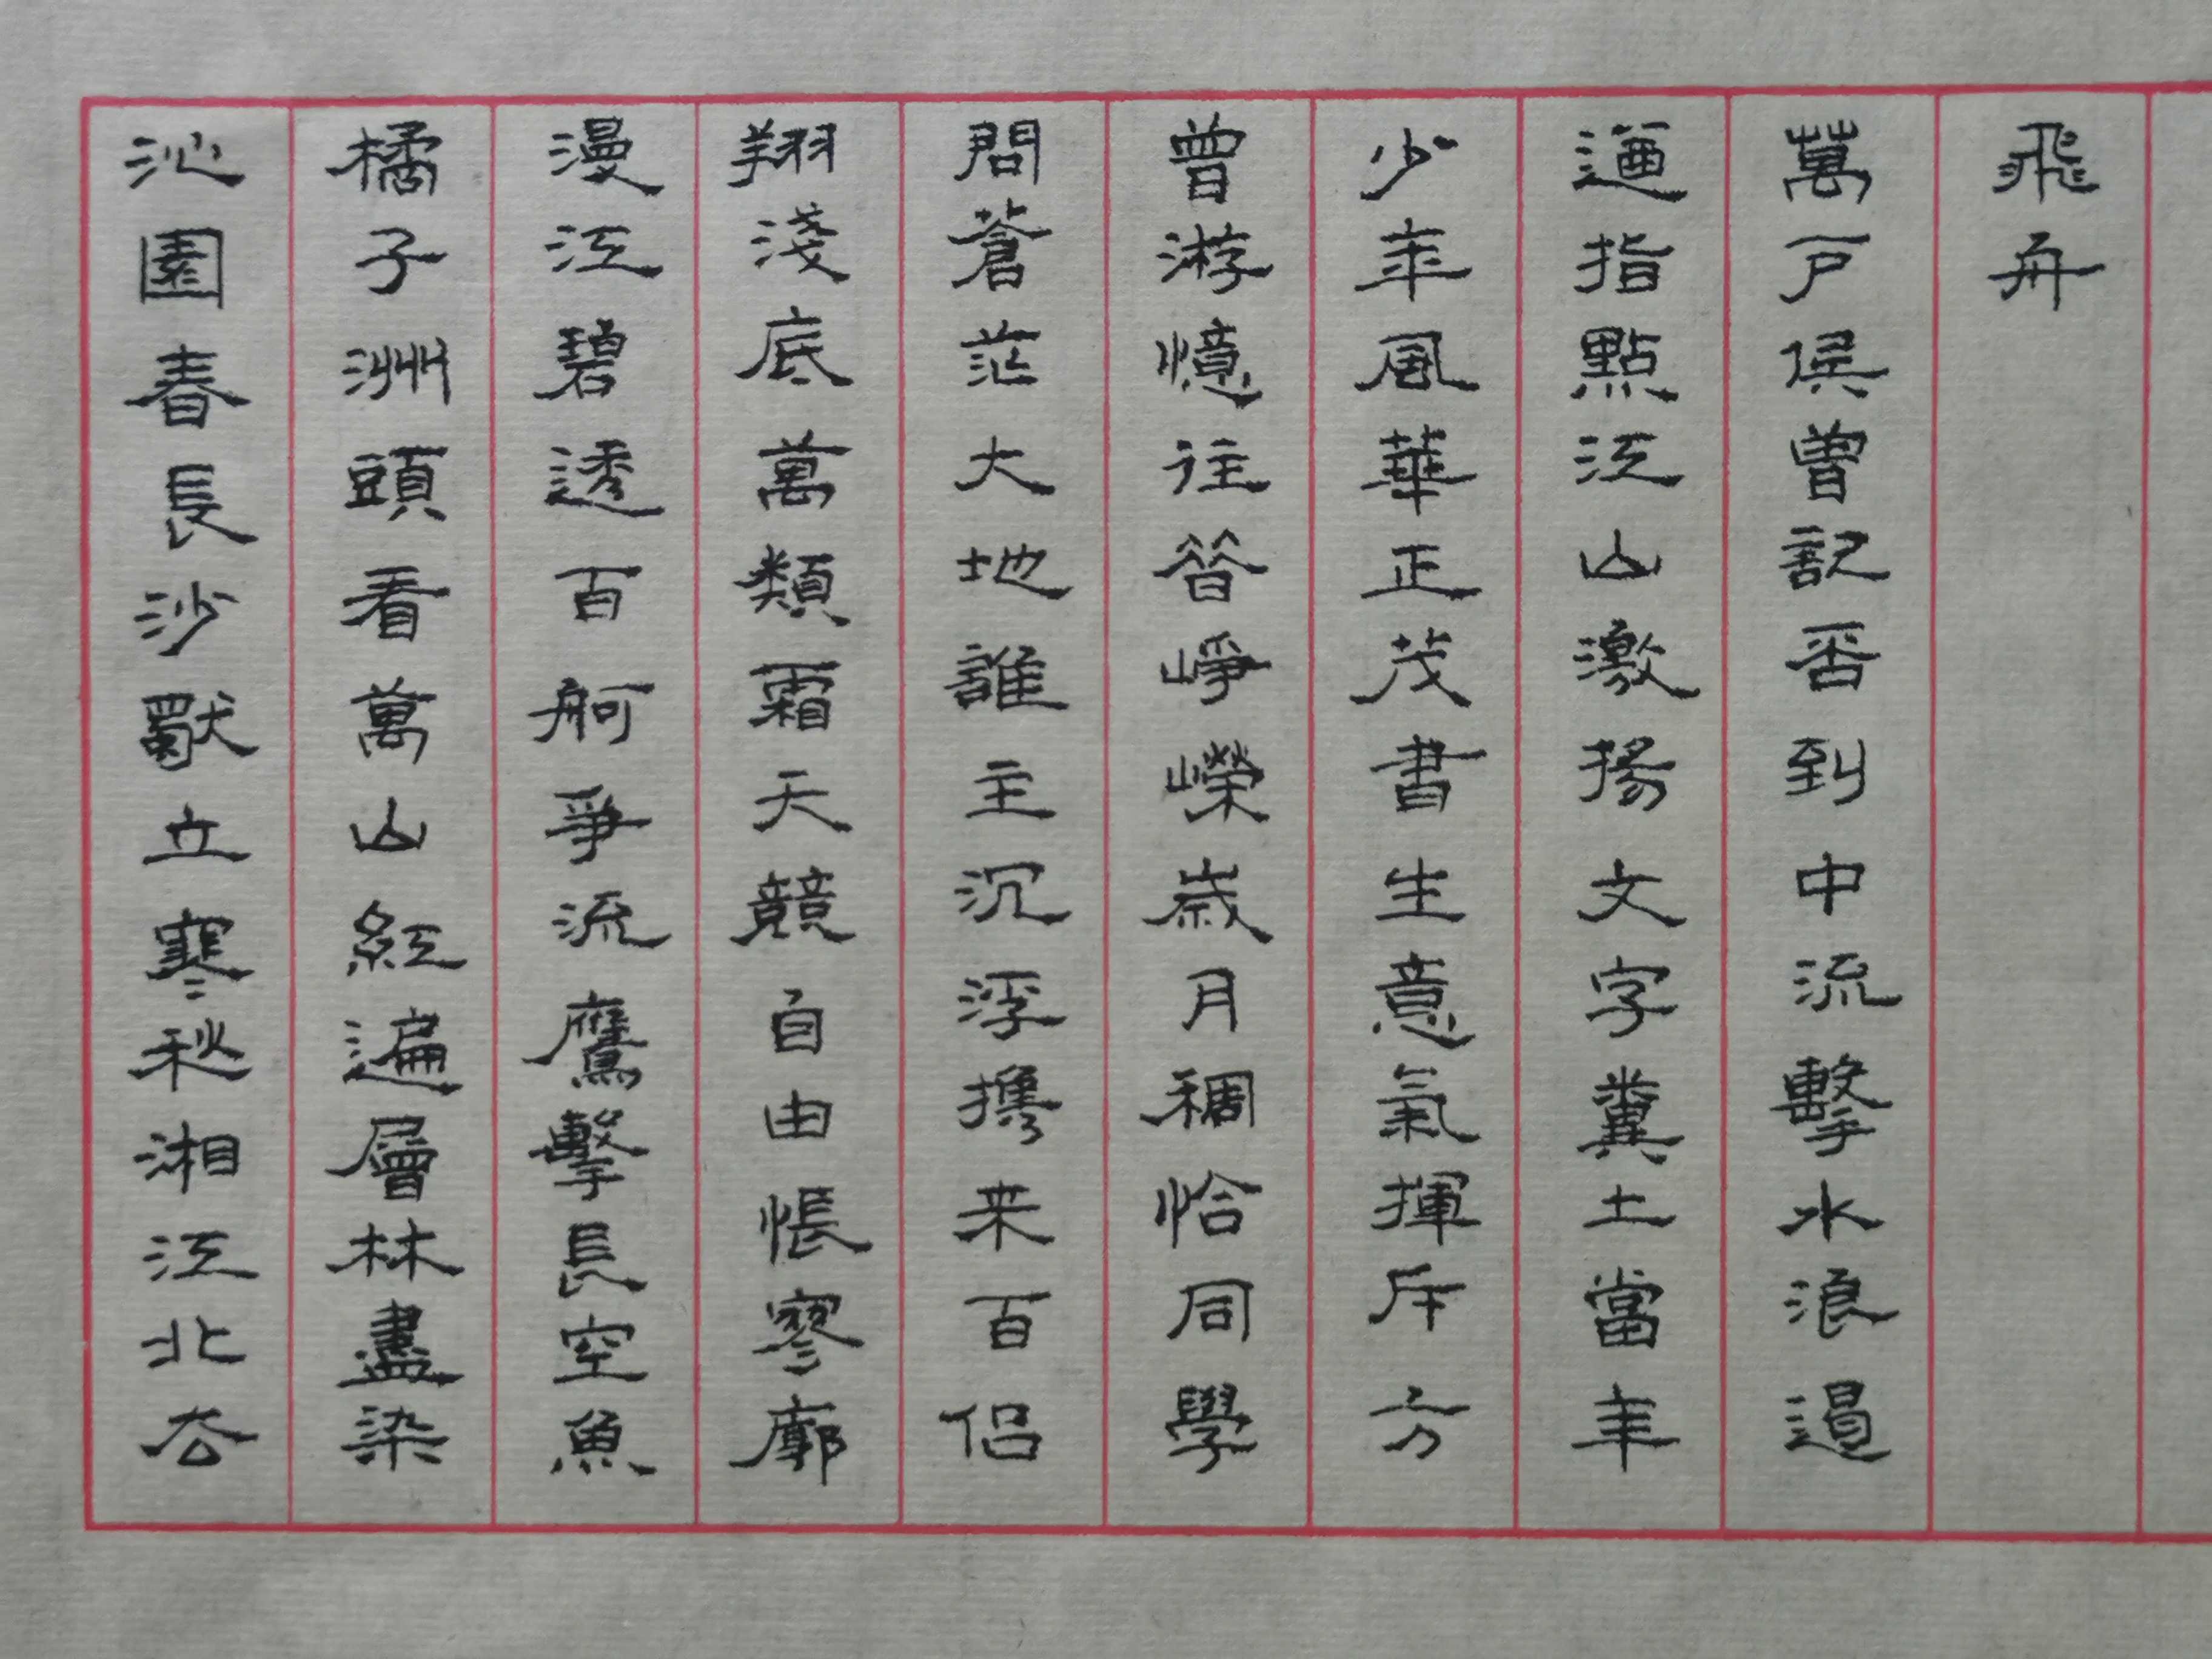 沁園春長沙獨立寒秋湘江北去
橘子洲頭看萬山紅遍層林盡染
漫江碧透百舸爭流鷹擊長空魚
翔淺底萬類霜天競自由悵寥廓
問蒼茫大地誰主沉浮携来百侣
曾游憶往昔崢嶸歲月稠恰同學
少年風華正茂書生意氣揮斥方
遒指點江山激揚文字糞土當年
萬戶侯曾記否到中流擊水浪遏
飛舟